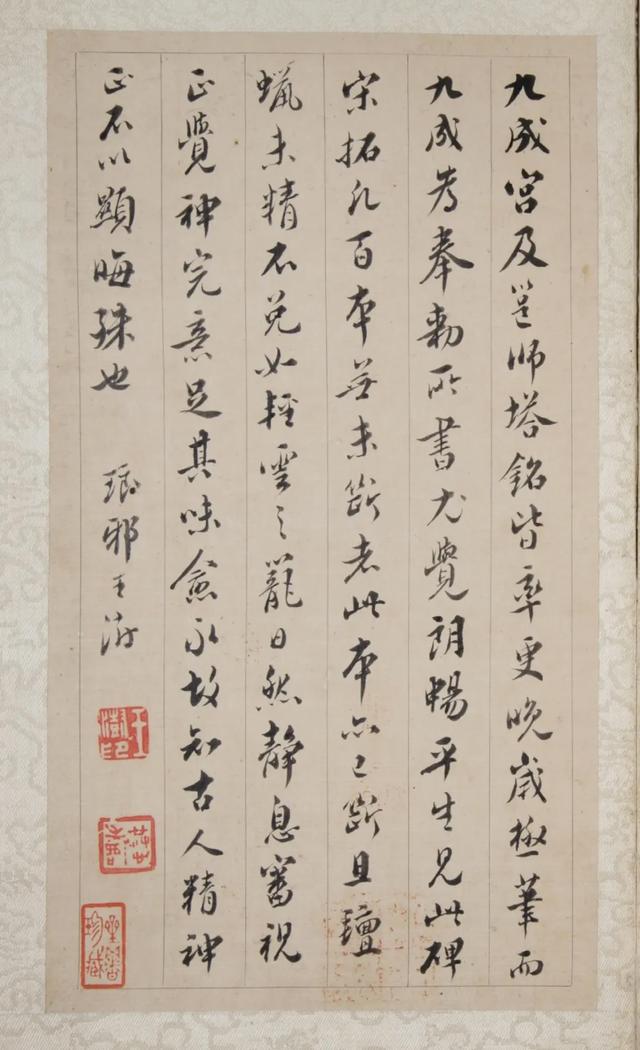 九成宮及邕師塔銘皆率更晚歲極筆而
九成為奉勅所書尤覺朗暢平生見此碑
宋拓凡百本苦未斷者此本亦已斷且氊
蠟未精不免如輕雲之籠日然靜息審視
正覺神完意足其味愈永故知古人精神
正不以顯晦殊也
琅邪王澍
王澍印
珍藏